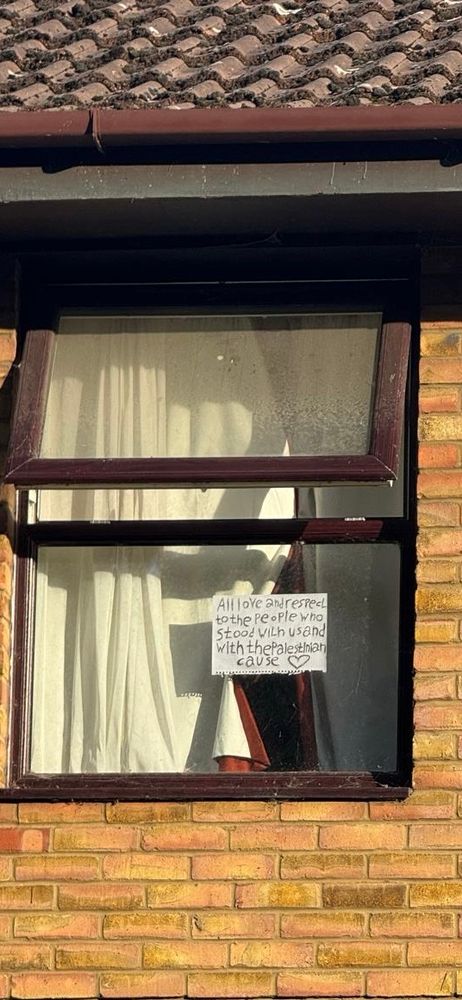 All love and respect
to the people who
stood with us and
with the Palestinian
cause ♡